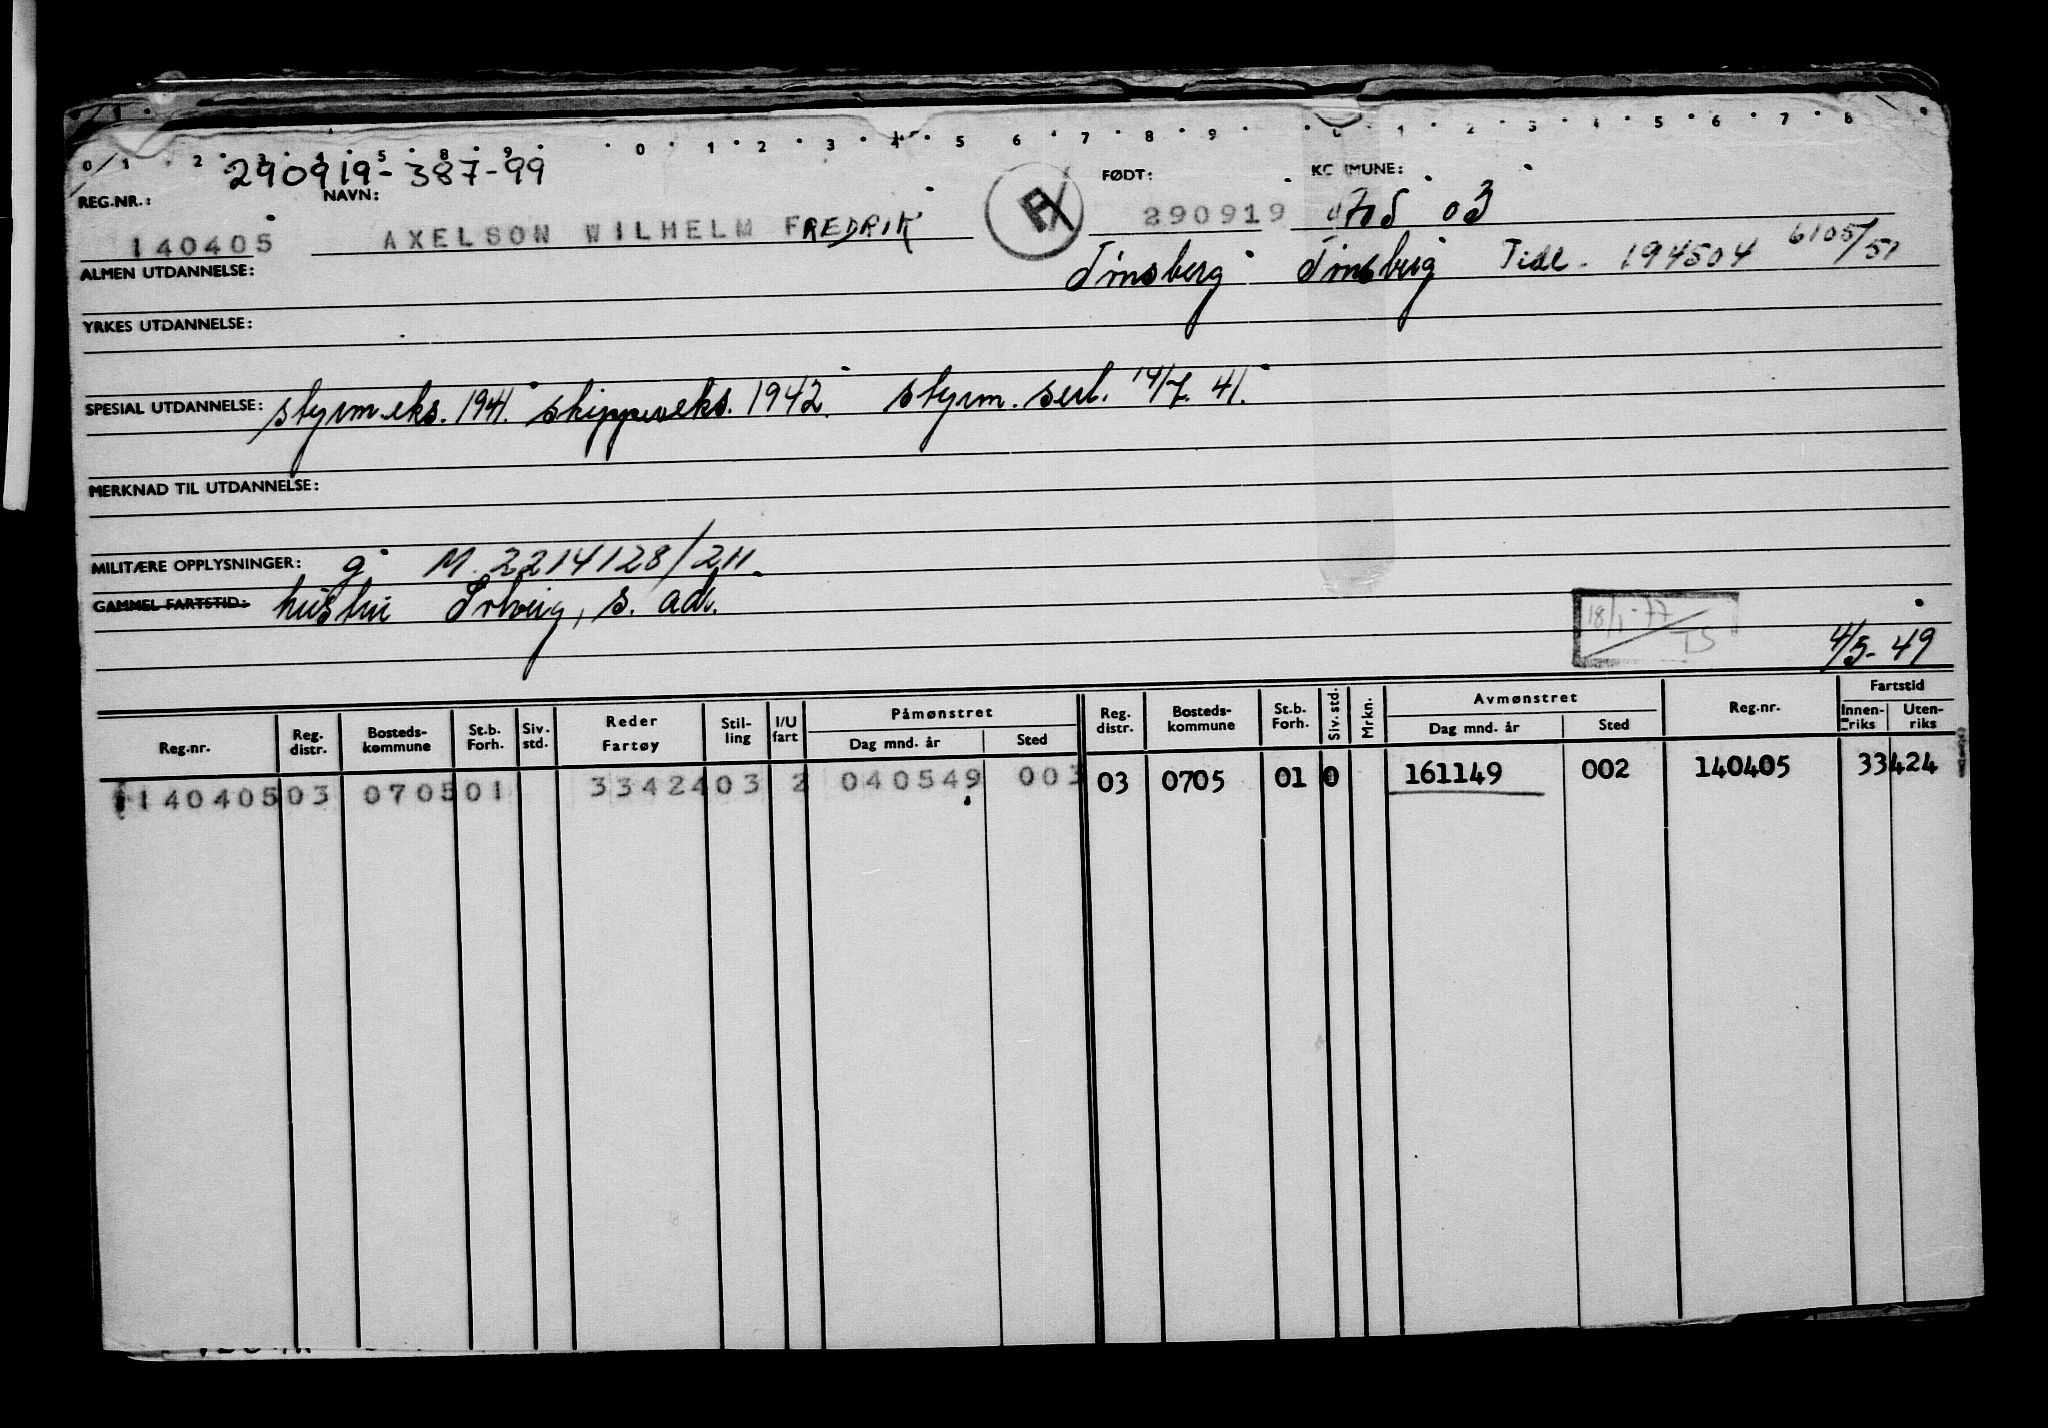 0 1 2 3 4 5 8 9 0 1 2 3 4 5 6 7 8 9 0 1 2 3 4 5 6 7 8
290919-387-99
REG.NR.: NAVN: FØDT: KOMMUNE:
140405 AXELSON WILHELM FREDRIK 290919 0705 03
ALMEN UTDANNELSE: Tønsberg Tønsberg Tidl. 194504 6105/51
YRKES UTDANNELSE:
SPESIAL UTDANNELSE: styrm.eks. 1941. skipperseks. 1942. styrm. sert. 14/7. 41.
MERKNAD TIL UTDANNELSE:
MILITÆRE OPPLYSNINGER: g M. 2214128/211.
GAMMEL FARTSTID: hustru Solveig, s. adr.
18/1-77 TS
4/5-49
Reg.nr. Reg. distr. Bosteds-kommune St.b. Forh. Siv. std. Reder Fartøy Stil-ling I/U fart Påmønstret Dag mnd. år Sted Reg. distr. Bosteds-kommune St.b. Forh. Siv. std. Mrkn. Avmønstret Dag mnd. år Sted Reg.nr. Fartstid Innen-riks Uten-riks
140405 03 0705 01 33424 03 2 040549 003 03 0705 01 0 161149 002 140405 33424